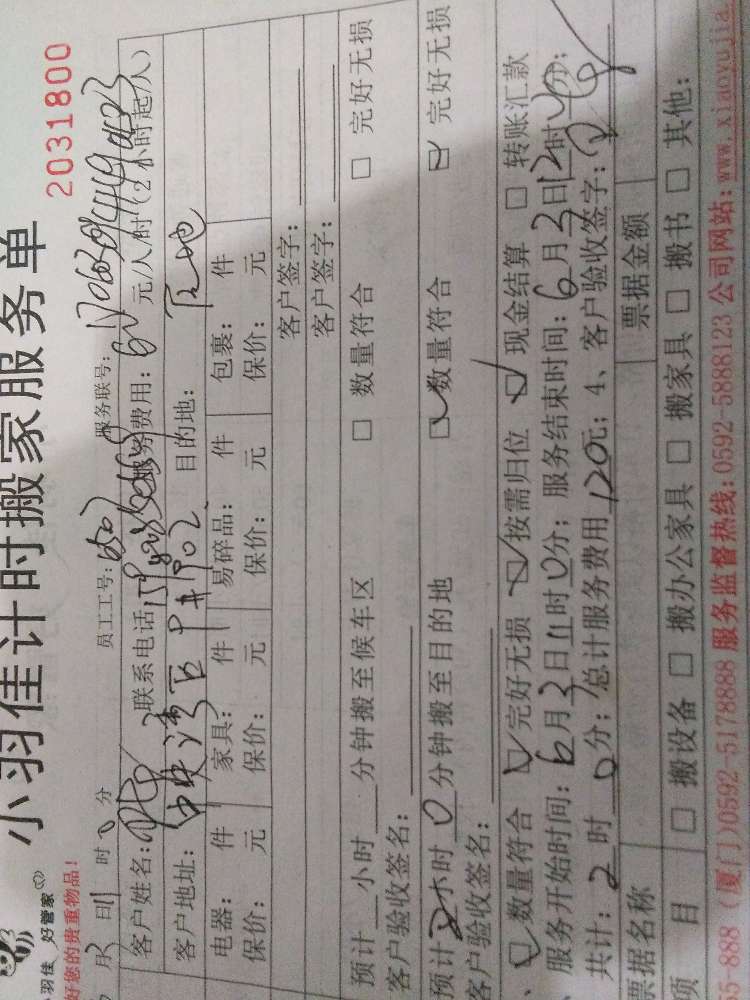 小羽佳计时搬家服务单
小羽佳 好管家
好您的贵重物品！
2031800
月2日11时0分 员工工号: 服务联号:
客户姓名: 联系电话 服务费用: 60元/人/时（2小时起/人）
客户地址: 中央湾区 902 目的地:
电器: 件 家具: 件 易碎品: 件 包裹: 件
保价: 元 保价: 元 保价: 元 保价: 元
客户签字:
预计 小时 分钟搬至候车区 □ 数量符合 □ 完好无损
客户验收签名: 客户签字:
预计2小时0分钟搬至目的地 ☑数量符合 ☑ 完好无损
客户验收签名:
、☑数量符合 ☑完好无损 ☑按需归位 ☑现金结算 □转账汇款
服务开始时间: 6月2日11时0分; 服务结束时间: 6月2日12时 分;
共计: 2时0分; 总计服务费用120元; 4、客户验收签字:
票据名称 票据金额
项 目 □ 搬设备 □ 搬办公家具 □ 搬家具 □ 搬书 □ 其他:
5-888（厦门)0592-5178888 服务监督热线: 0592-5888123 公司网站: www.xiaoyujia.